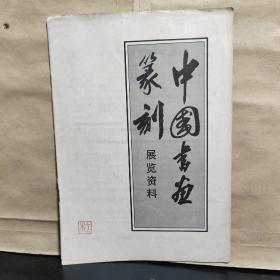 中国书画
篆刻
展览资料